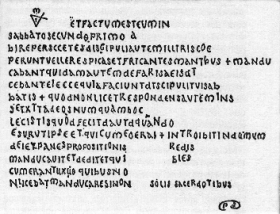 ETFACTUMESTEUMIN
SABBATOSECUNDOPRIMO A
BIREPERSCCETESAISGIPULIAUTEMILLIRISCOE
PERUNTVELLERESPICASETFRICANTESMANIBUS + MANDU
CABANTQUIDAMAUTEMDEFARISAEISAT
CEBANTELECCEQUIAFACIUNTATSCIPULITVISAB
BATIS + QUODNONLICETRESPONDENSAUTEMINS
SETXTTADEOSNUMQUAMBOC
LECISTISQUODFECITDAUTDQUANDO
ESURUTIPSEETQUICUMEOERAT + INTROIBITINDOMUM
DEIETPANESPROPOSITIONIS REDIS
MANDUCAVITETDEDITETQUI BLES
CUMERANTUXUOQUIBUSNO
NLICEBATMANDUCARESINON SOLIS SACERDOTIBUS
PD